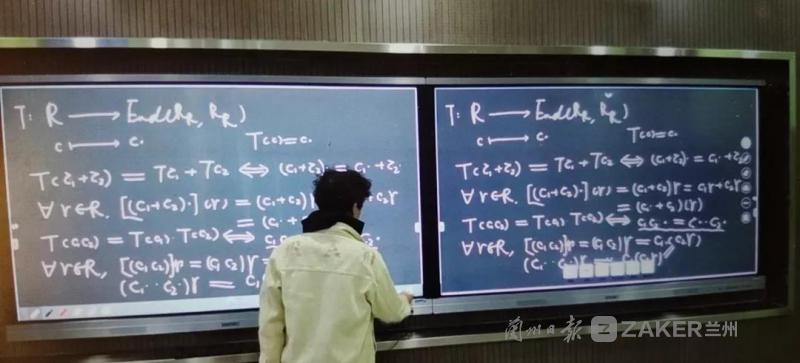 T: R ⟶ End(R_R, R_R)
c ⟼ c·
T(c)=c·
T(c₁+c₂) = Tc₁ + Tc₂ ⟺ (c₁+c₂)· = c₁· + c₂·
∀ r∈R. [(c₁+c₂)·](r) = (c₁+c₂)
= (c₁· +
T(c₁c₂) = T(c₁)·T(c₂) ⟺
∀ r∈R, [(c₁c₂)·]r = (c₁c₂)r =
(c₁· c₂·)r = c₁
T: R ⟶ End(R_R, R_R)
c ⟼ c·
T(c)=c·
T(c₁+c₂) = Tc₁ + Tc₂ ⟺ (c₁+c₂)· = c₁· + c₂
∀ r∈R. [(c₁+c₂)·](r) = (c₁+c₂)r = c₁r + c₂r
= (c₁· + c₂·)(r)
T(c₁c₂) = T(c₁)·T(c₂) ⟺ c₁c₂· = c₁·c₂·
∀ r∈R, [(c₁c₂)·]r = (c₁c₂)r = c₁(c₂r)
兰州日报 ZAKER兰州